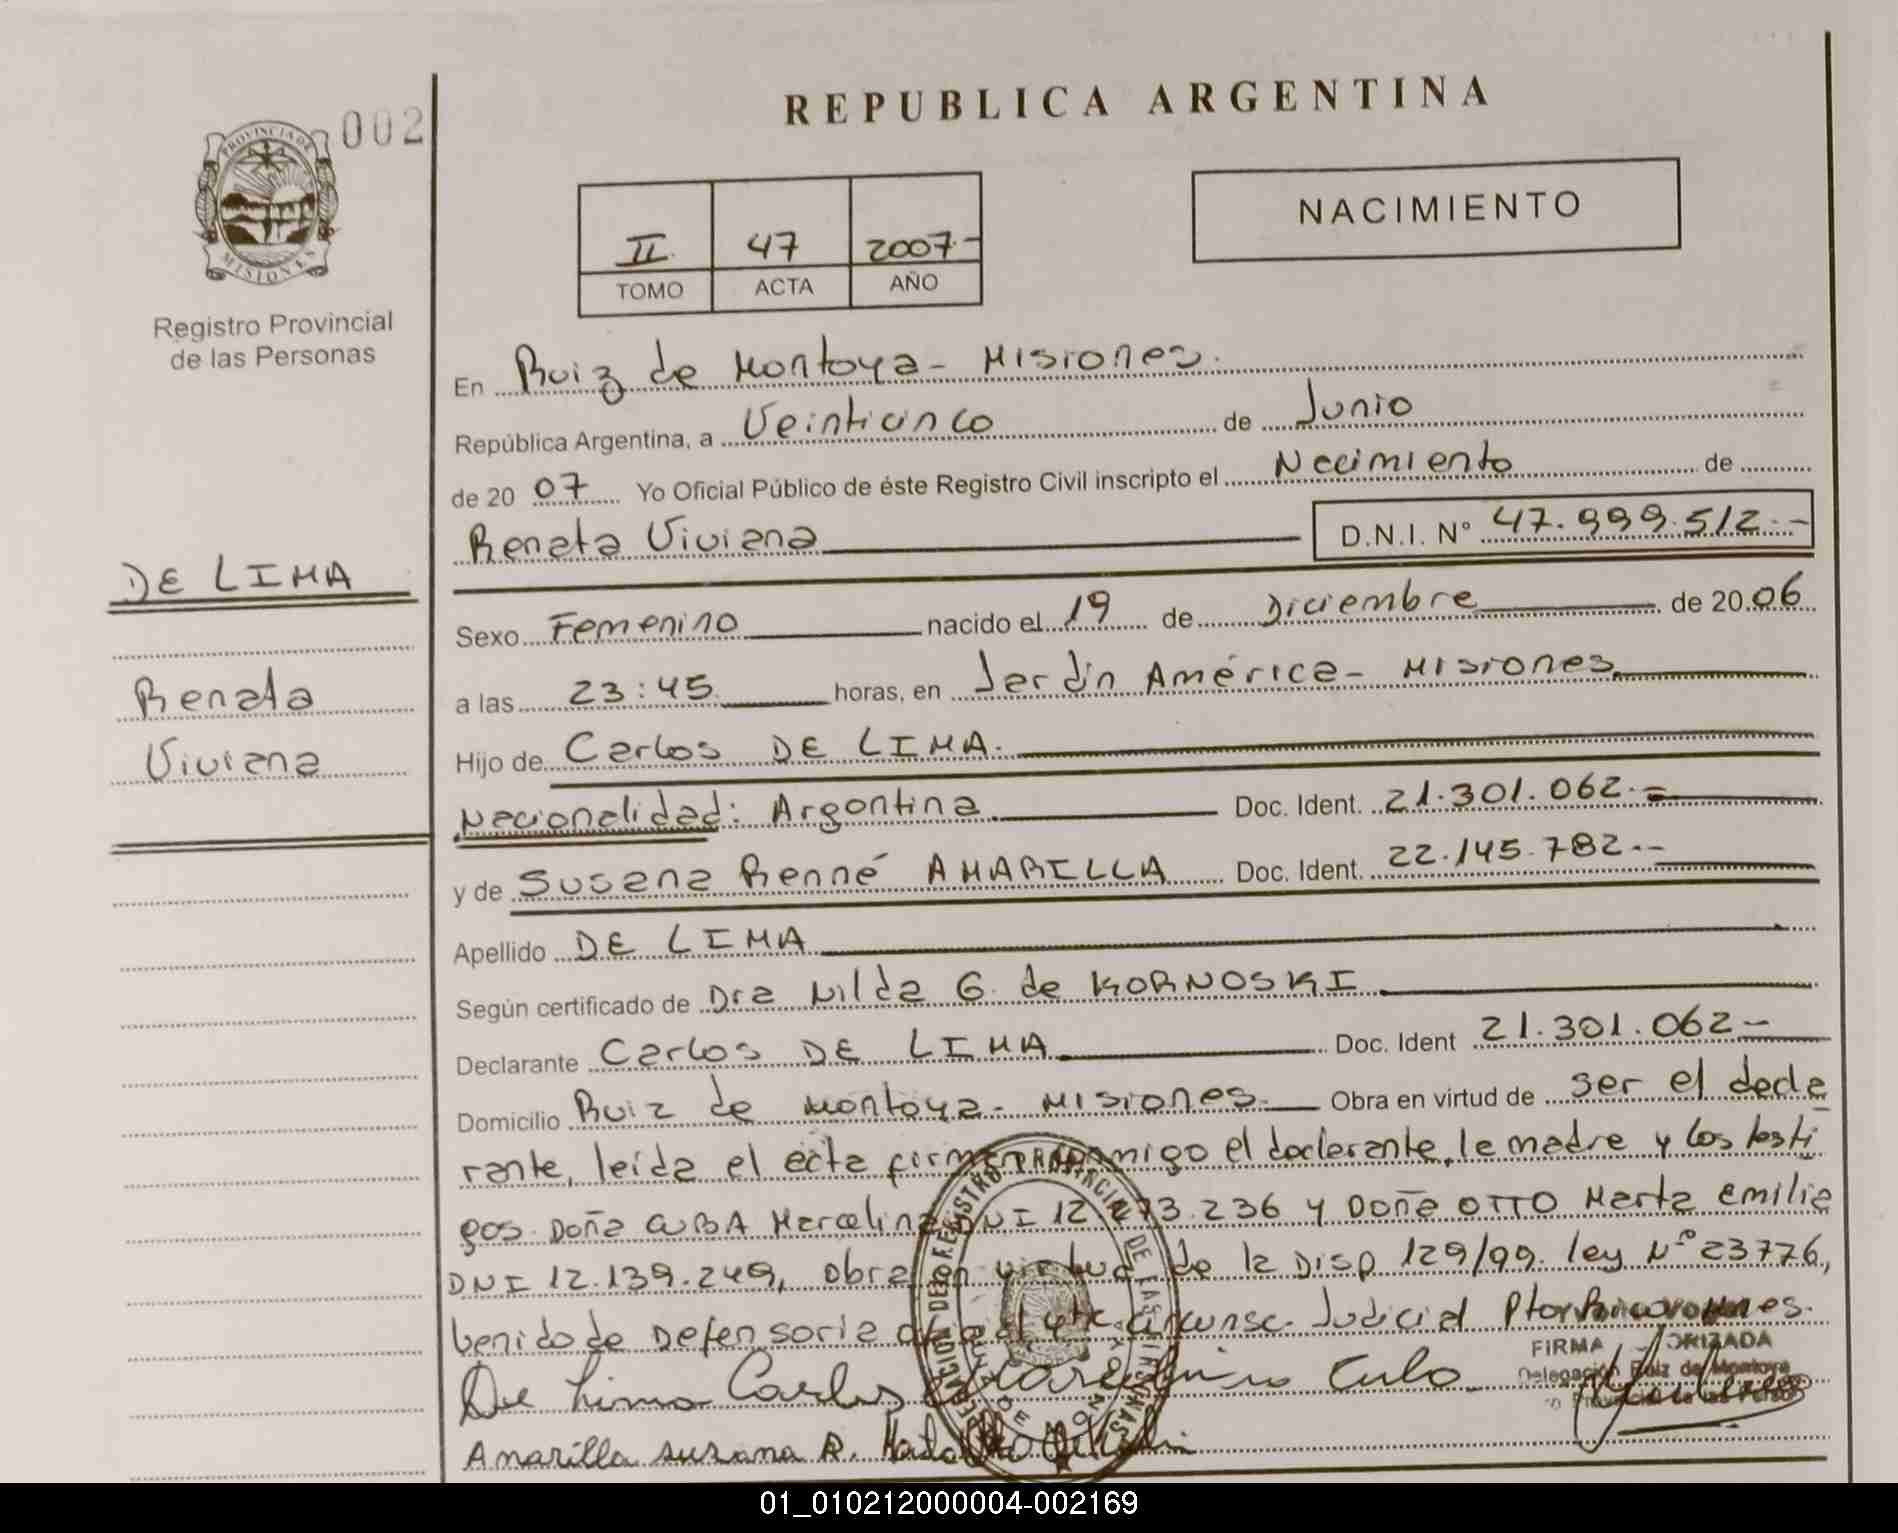 REPUBLICA ARGENTINA
002
PROVINCIA DE
MISIONES
Registro Provincial
de las Personas
II 47 2007-
TOMO ACTA AÑO
NACIMIENTO
En Ruiz de Montoya - Misiones.
República Argentina, a Veinticinco de Junio
de 2007 Yo Oficial Público de éste Registro Civil inscripto el Nacimiento de
Renata Viviana D.N.I. N° 47.999.512.-
DE LIMA
Renata
Viviana
Sexo Femenino nacido el 19 de Diciembre de 2006
a las 23:45 horas, en Jardín América - Misiones
Hijo de Carlos DE LIMA.
Nacionalidad: Argentina Doc. Ident. 21.301.062.-
y de Susana Renné AMARILLA Doc. Ident. 22.145.782.-
Apellido DE LIMA
Según certificado de Dra Nilda G. de KORNOSKI
Declarante Carlos DE LIMA Doc. Ident 21.301.062-
Domicilio Ruiz de Montoya - Misiones. Obra en virtud de ser el decla
rante, leída el acta firman conmigo el declarante, la madre y los testi
gos. Doña Marcelina DNI 12. 73.236 y Doña OTTO Marta Emilia
DNI 12.139.249, obra en virtud de la Disp 129/99. ley N° 23776,
Defensoria Judicial
FIRMA AUTORIZADA
Delegación Ruiz de Montoya
De Lima Carlos
Amarilla susana R.
01_010212000004-002169